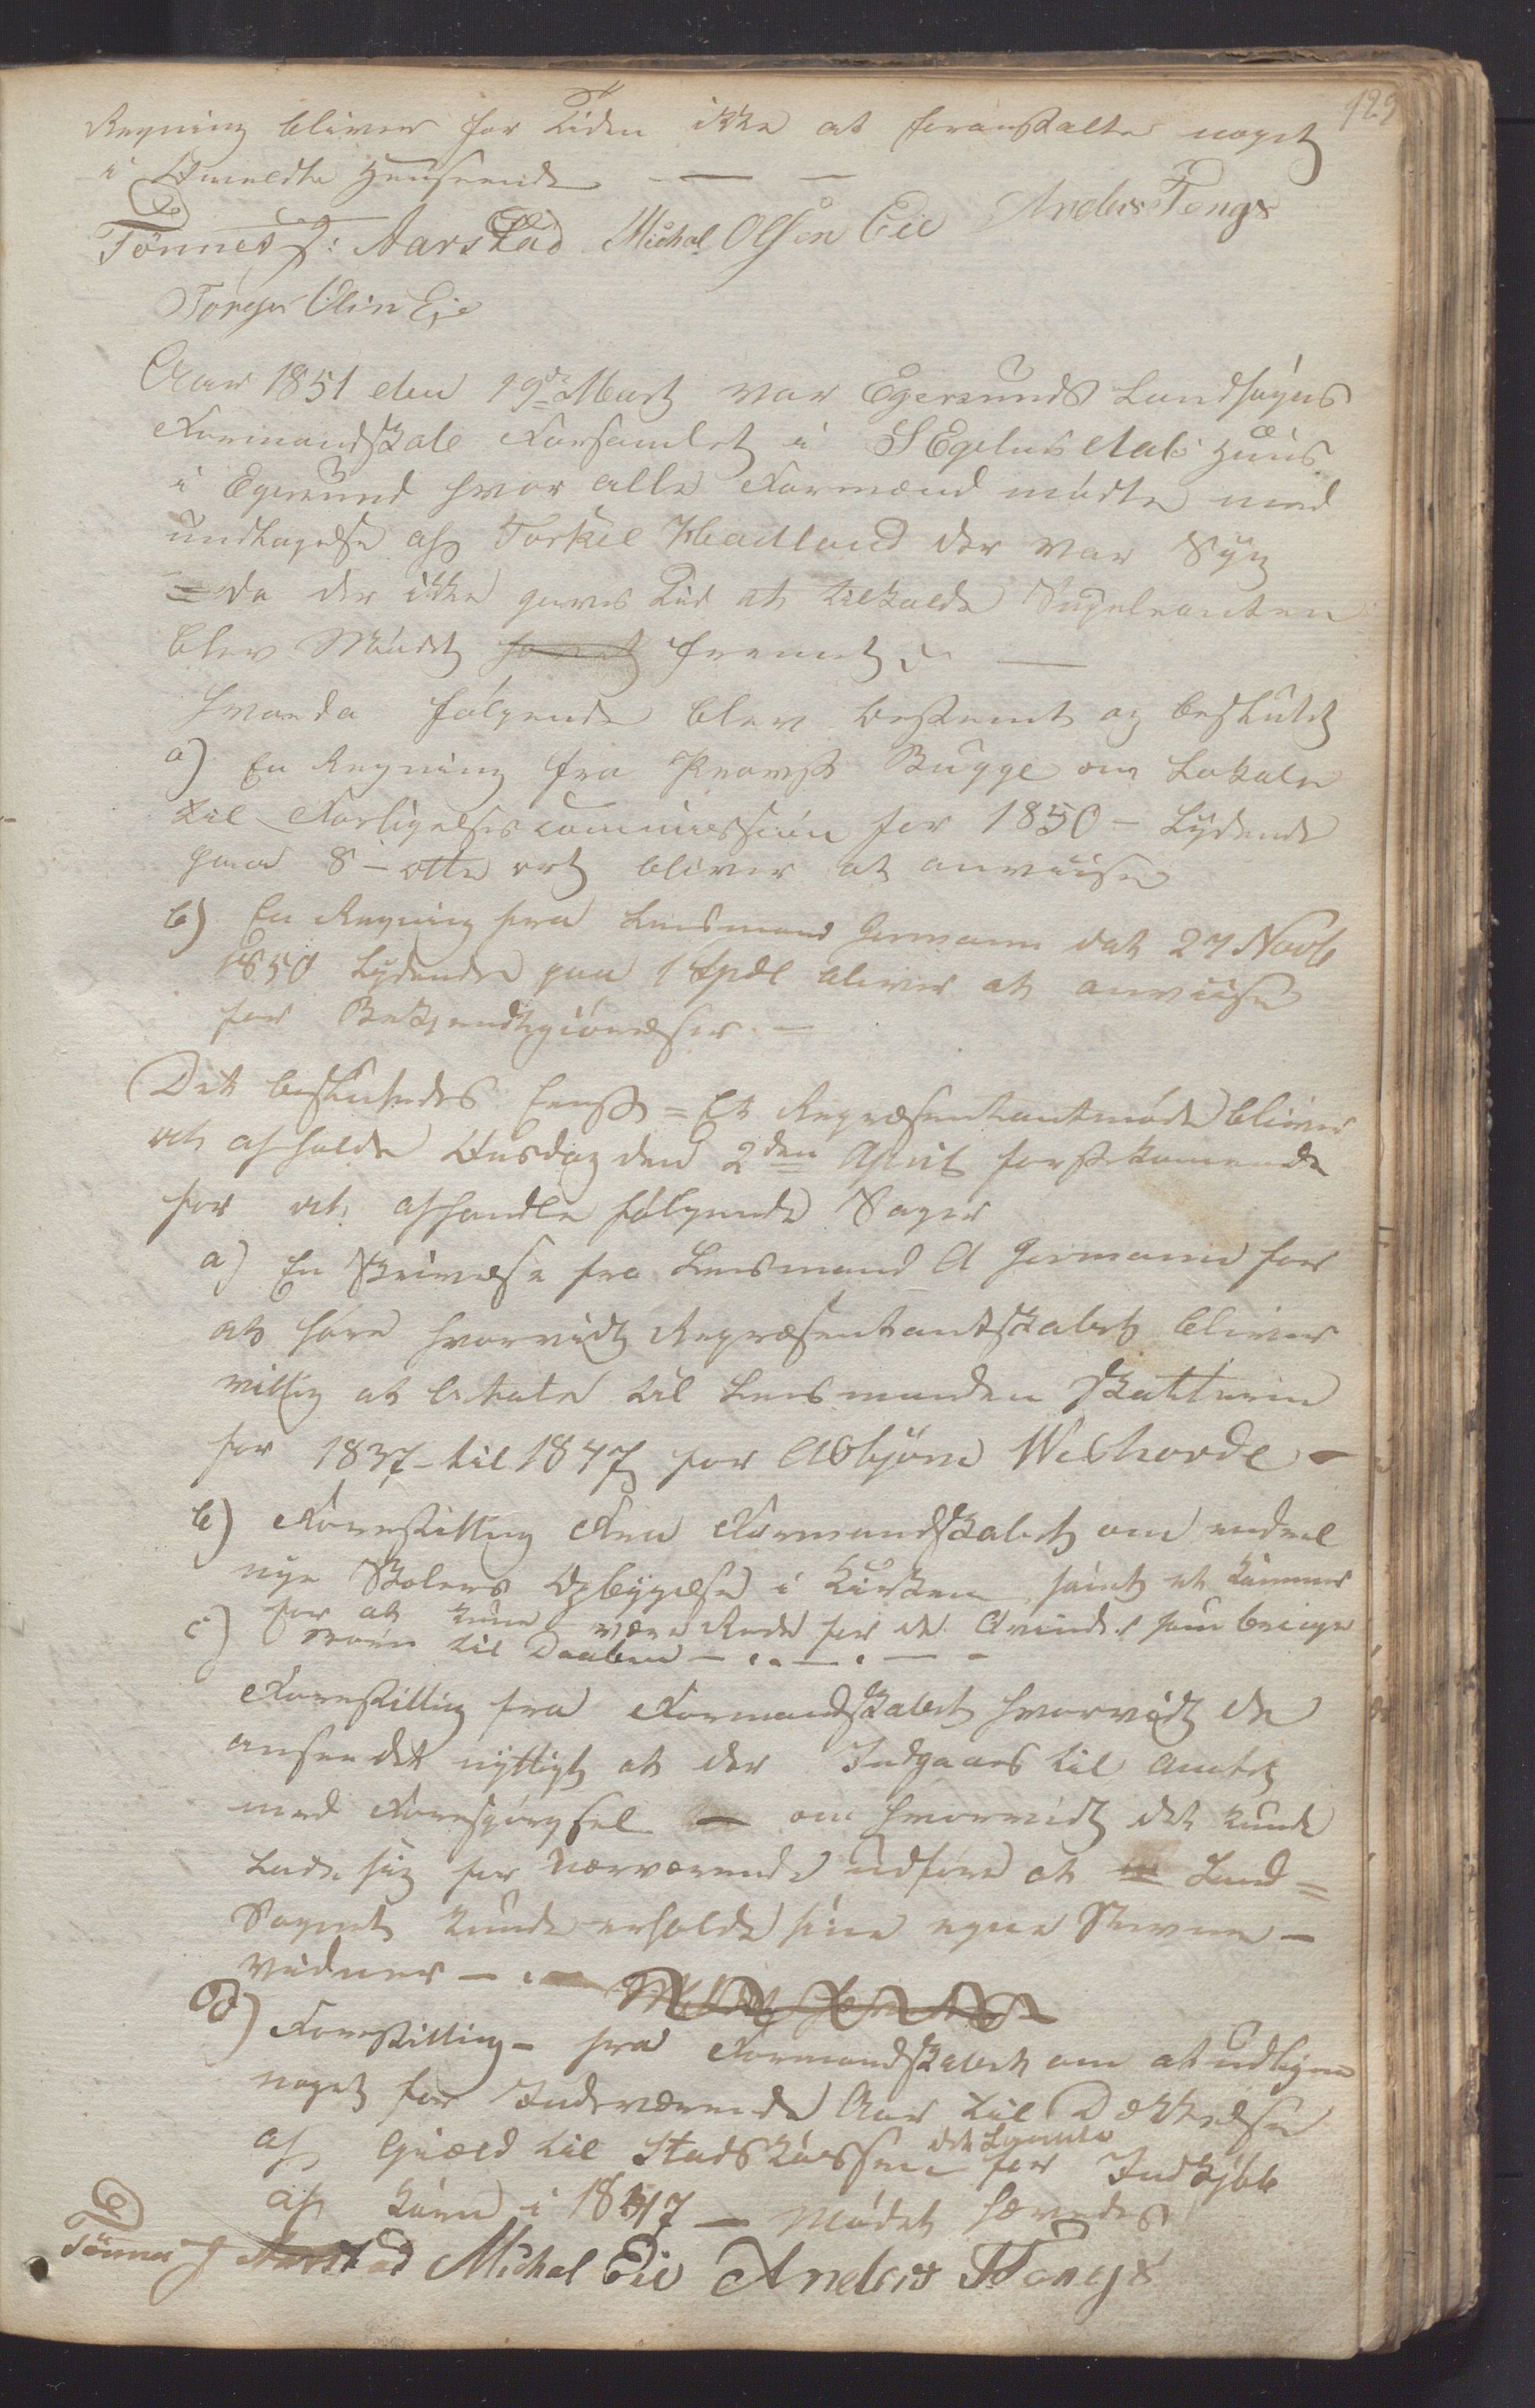 129
Regning bliver for Tiden ikke at foranstalte noget
i Omeldte Henseende — —
Tønnes J: Aarstad Michal Olsen Eie Anders Tengs
Torger Olsen Eje
Aar 1851 den 19de Marts var Egersunds Landsogns
Formandskab Forsamlet i Huus
i Egersund hvor alle Formænd mødte med
undtagelse af Torkel Hadland der var Syg
= da der ikke gaves Tid at tilkalde Supleanten
blev Mødet fremet —
hvorda følgende blev bestemt og besluttet
a) En Regning fra Provst Bugge om Lokale
til Forligelsescommission for 1850 – Lydende
paa 8 – otte ort bliver at anviise
b) En Regning fra Lensmand Germann dat 27 Novb
1850 Lydende paa 1 Spdl bliver at anviise
for Bekjendtgiørelser. —
Det besluttedes = Et Repræsentantmøde bliver
at afholde Onsdag den 2den April førstkomende
for at afhandle følgende Sager
a) En Skrivelse fra Lensmand A Germann for
at høre hvorvidt Repræsentantskabet bliver
villig at betale til Lensmanden Skatterne
for 1837 – til 1847 for Asbjørn –
b) Forestilling Fra Formandskabet om endeel
nye Stolers Opbygelse i Kirken samt et Kammer
c) for at kune være Rede for de Qvinder som bringe
Børn til Daaben — . . — . — -
Forestilling fra Formandskabet hvorvidt de
ansee det nyttigt at der Indgaaes til Amtet
med Forespørgsel om hvorvidt det kunde
Lade sig for nærværende udføre at Land=
Sognet kunde erholde sine egne Stevne –
vidner – .
d) Forestilling – fra Formandskabet om at udligne
noget for Indeværende Aar til Dækkelse
af Gjæld til Statskassen for Indkjøb
af Korn i 1847 — Mødet hævedes
Tønnes J Aarstad Michal Eie Anders Tengs